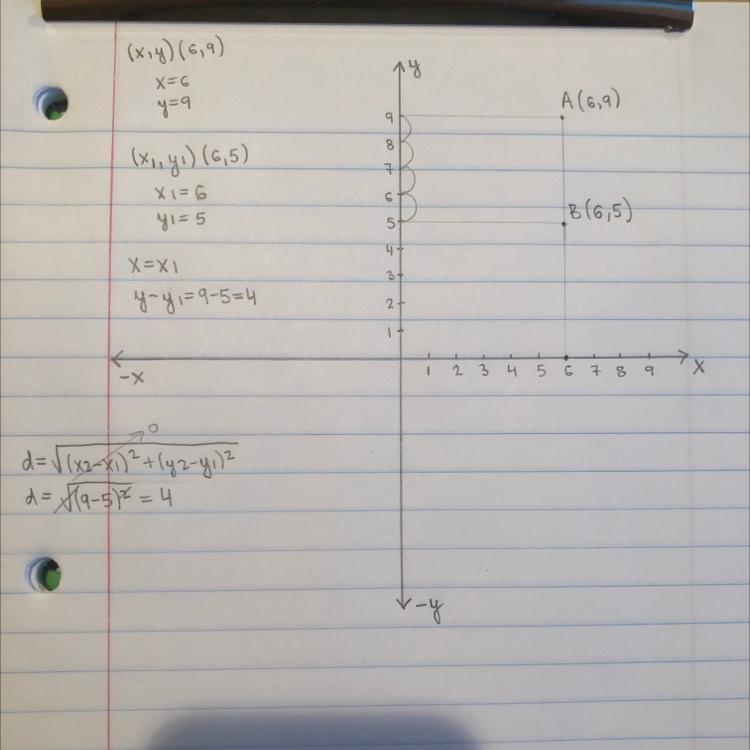 (x,y)(6,9)
x=6
y=9
(x1,y1)(6,5)
x1=6
y1=5
x=x1
y-y1=9-5=4
y
A(6,9)
9
8
7
6
B(6,5)
5
4
3
2
1
-x
1 2 3 4 5 6 7 8 9
x
0
d=√(x2-x1)²+(y2-y1)²
d=√(9-5)²=4
-y